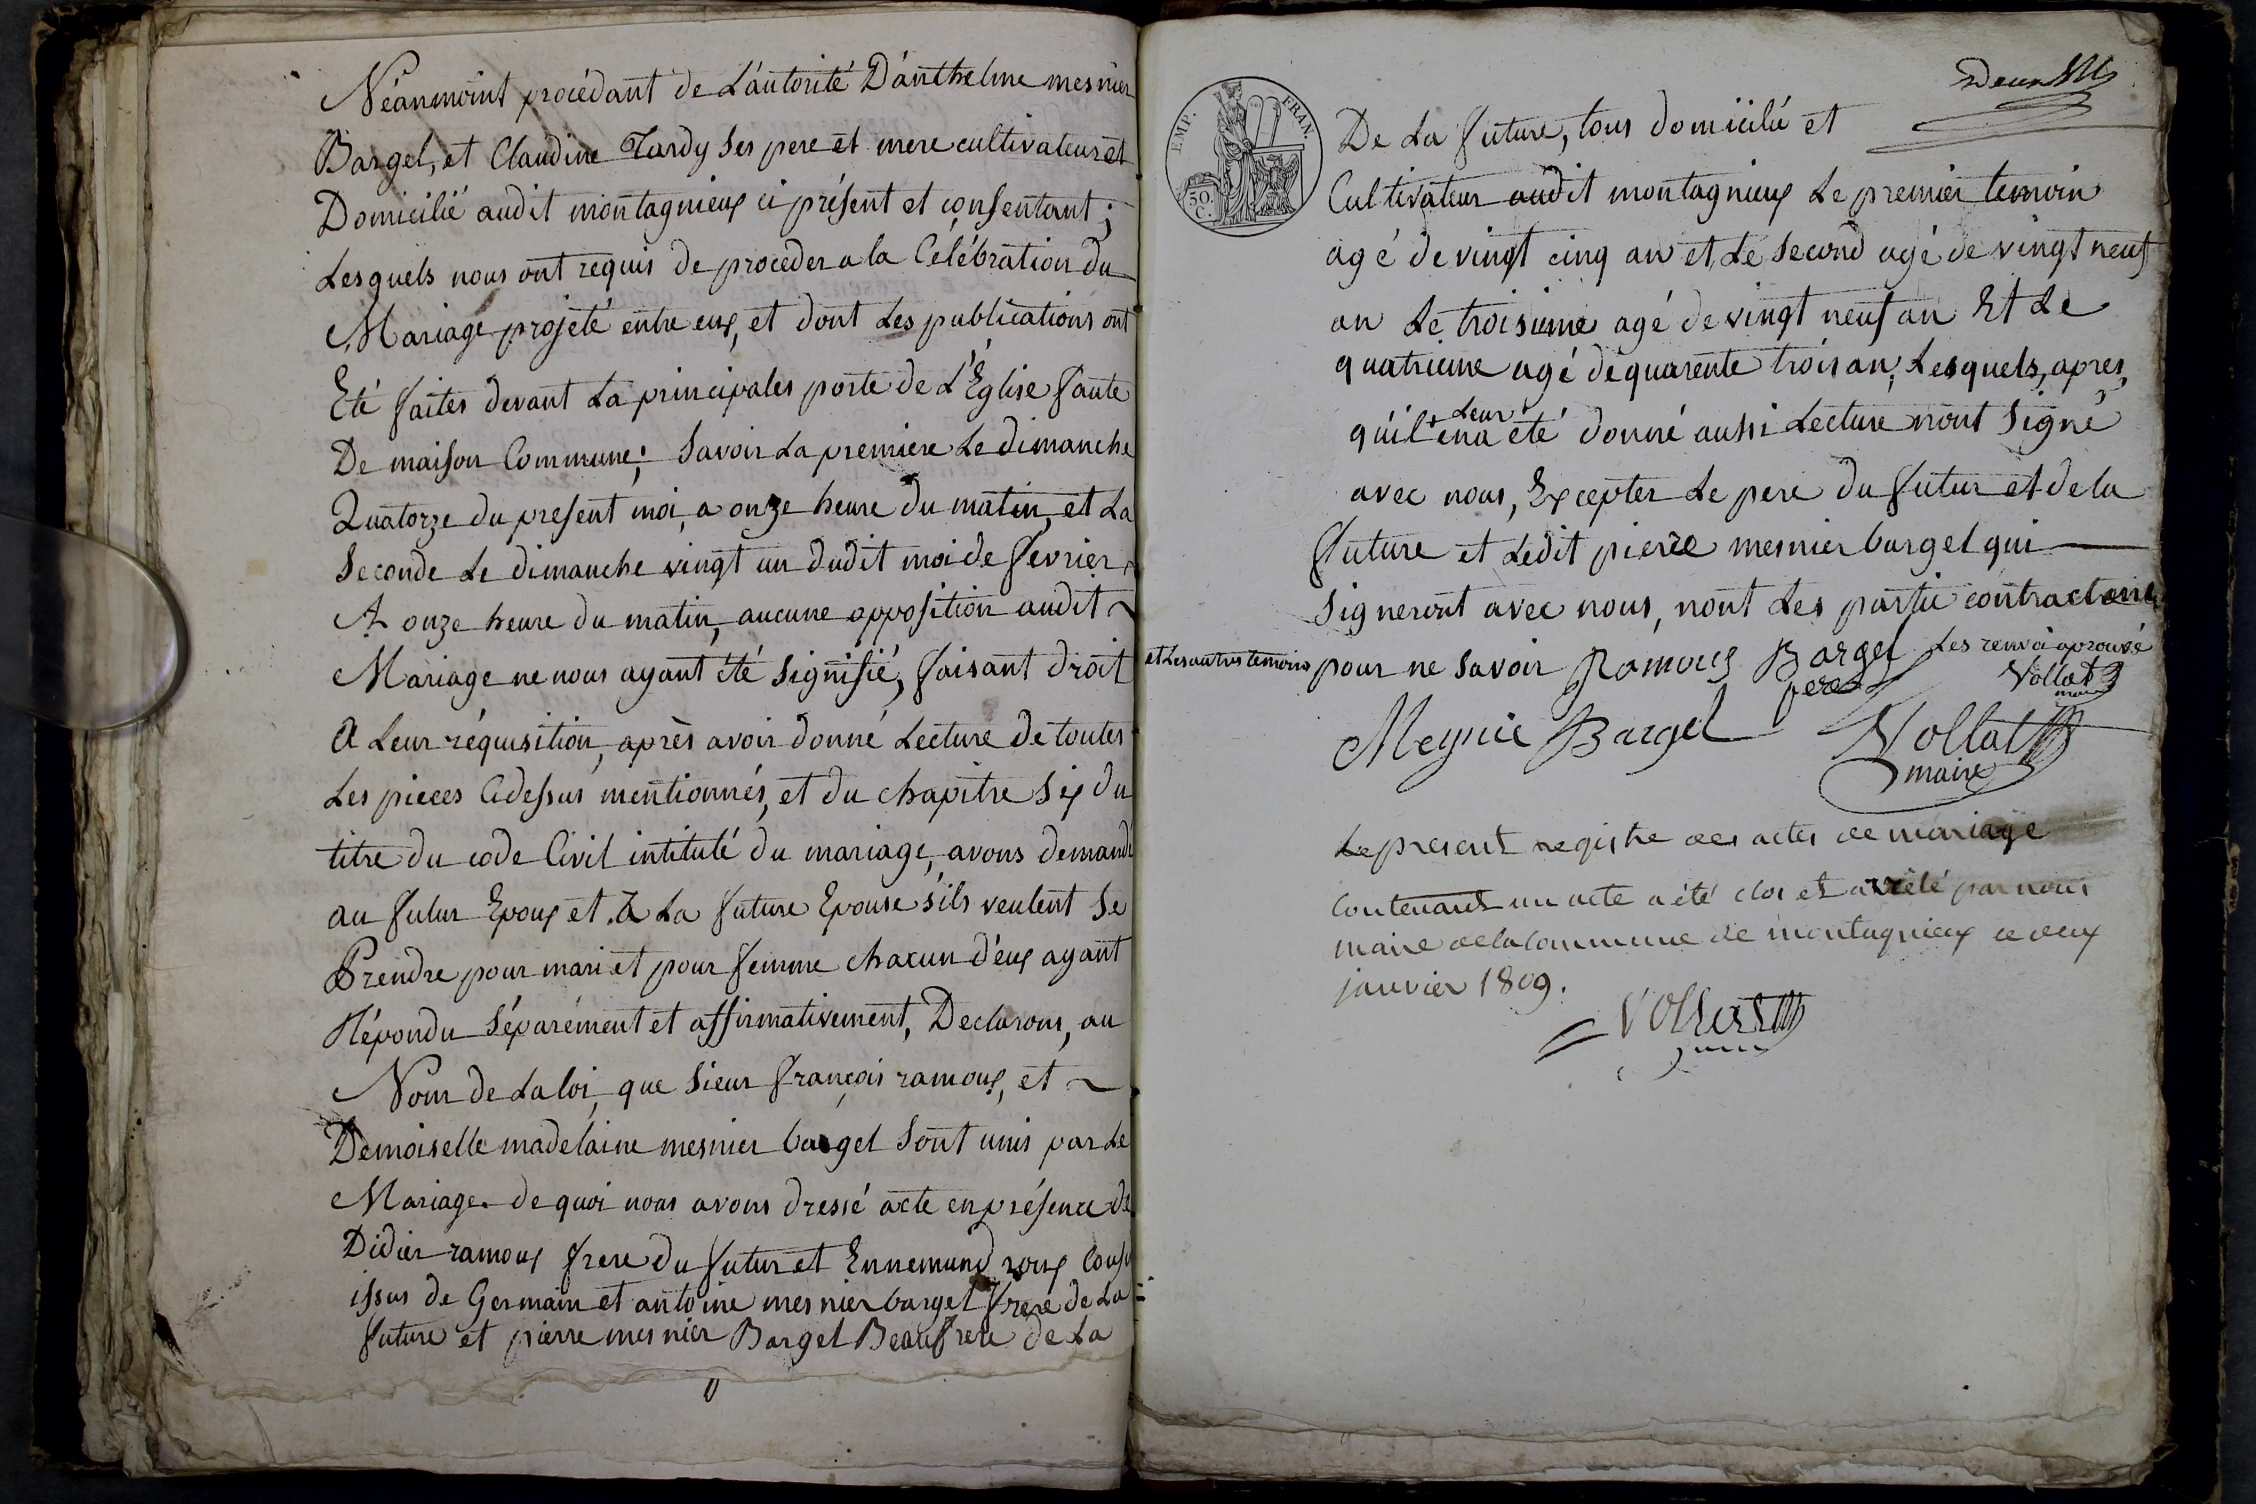 Néanmoint procédant de L'autorité D'anthelme mesnier
Bargel, et Claudine Tardy ses pere et mere cultivateur et
Domicilié audit montagnieux ci présent et consentant ;
Lesquels nous ont requis de proceder a la Célébration du
Mariage projeté entre eux, et dont Les publications ont
Eté faites devant La principales porte de L'Eglise faute
De maison Commune ; Savoir La premiere Le dimanche
Quatorze du present moi, a onze heure du matin, et La
Seconde Le dimanche vingt un dudit moi de fevrier
A onze heure du matin, aucune opposition audit
Mariage ne nous ayant été signifié, faisant droit
A Leur réquisition, après avoir donné Lecture De toutes
Les pieces Cidessus mentionnés, et du chapitre six du
titre du code Civil intitulé du mariage, avons demandé
au futur Epoux et A La future Epouse s'ils veulent se
Prendre pour mari et pour femme chacun d'eux ayant
Répondu Séparément et affirmativement, Declarons, au
Nom de La loi, que Sieur françois ramoux, et
Demoiselle madelaine mesnier bargel sont unis par Le
Mariage. de quoi nous avons dressé acte en présence de
Didier ramoux frere du futur et Ennemund roux Cousi
issus de Germain et antoine mesnier bargel frere de La
future et pierre mesnier Bargel Beaufrere de La
Deux
EMP. FRAN.
50. C.
De La future, tous domicilié et
Cultivateur audit montagnieux Le premier temoin
agé de vingt cinq an et Le Second agé de vingt neuf
an Le troisieme agé de vingt neuf an Et Le
quatrieme agé de quarente trois an ; Lesquels, apres
Leur
qu'il + en a été donné aussi Lecture n'ont Signé
avec nous, Excepter Le pere du futur et de la
future et Ledit pierre mesnier bargel qui
Signeront avec nous, nont Les partie contractante
et Les autres temoins pour ne savoir Ramoux Bargel Les renvoi aprouvé
pere Vollat
maire
Meynie Bargel Vollat
maire
Le present registre des actes de mariage
Contenant un acte a été clos et arrêté par nous
maire de la Commune de montagnieux ce deux
janvier 1809.
Vollat